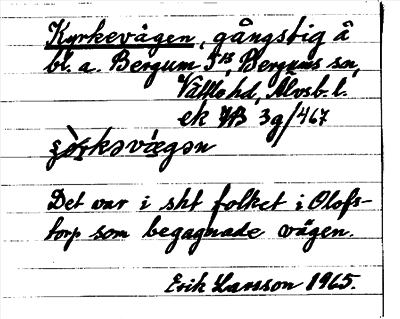 Kyrkevägen, gångstig å
bl. a. Bergum 5¹³, Bergums sn,
Vättle hd, Älvsb. l.
ek 3g/467
Det var i sht folket i Olofs-
torp som begagnade vägen.
Erik Larsson 1965.